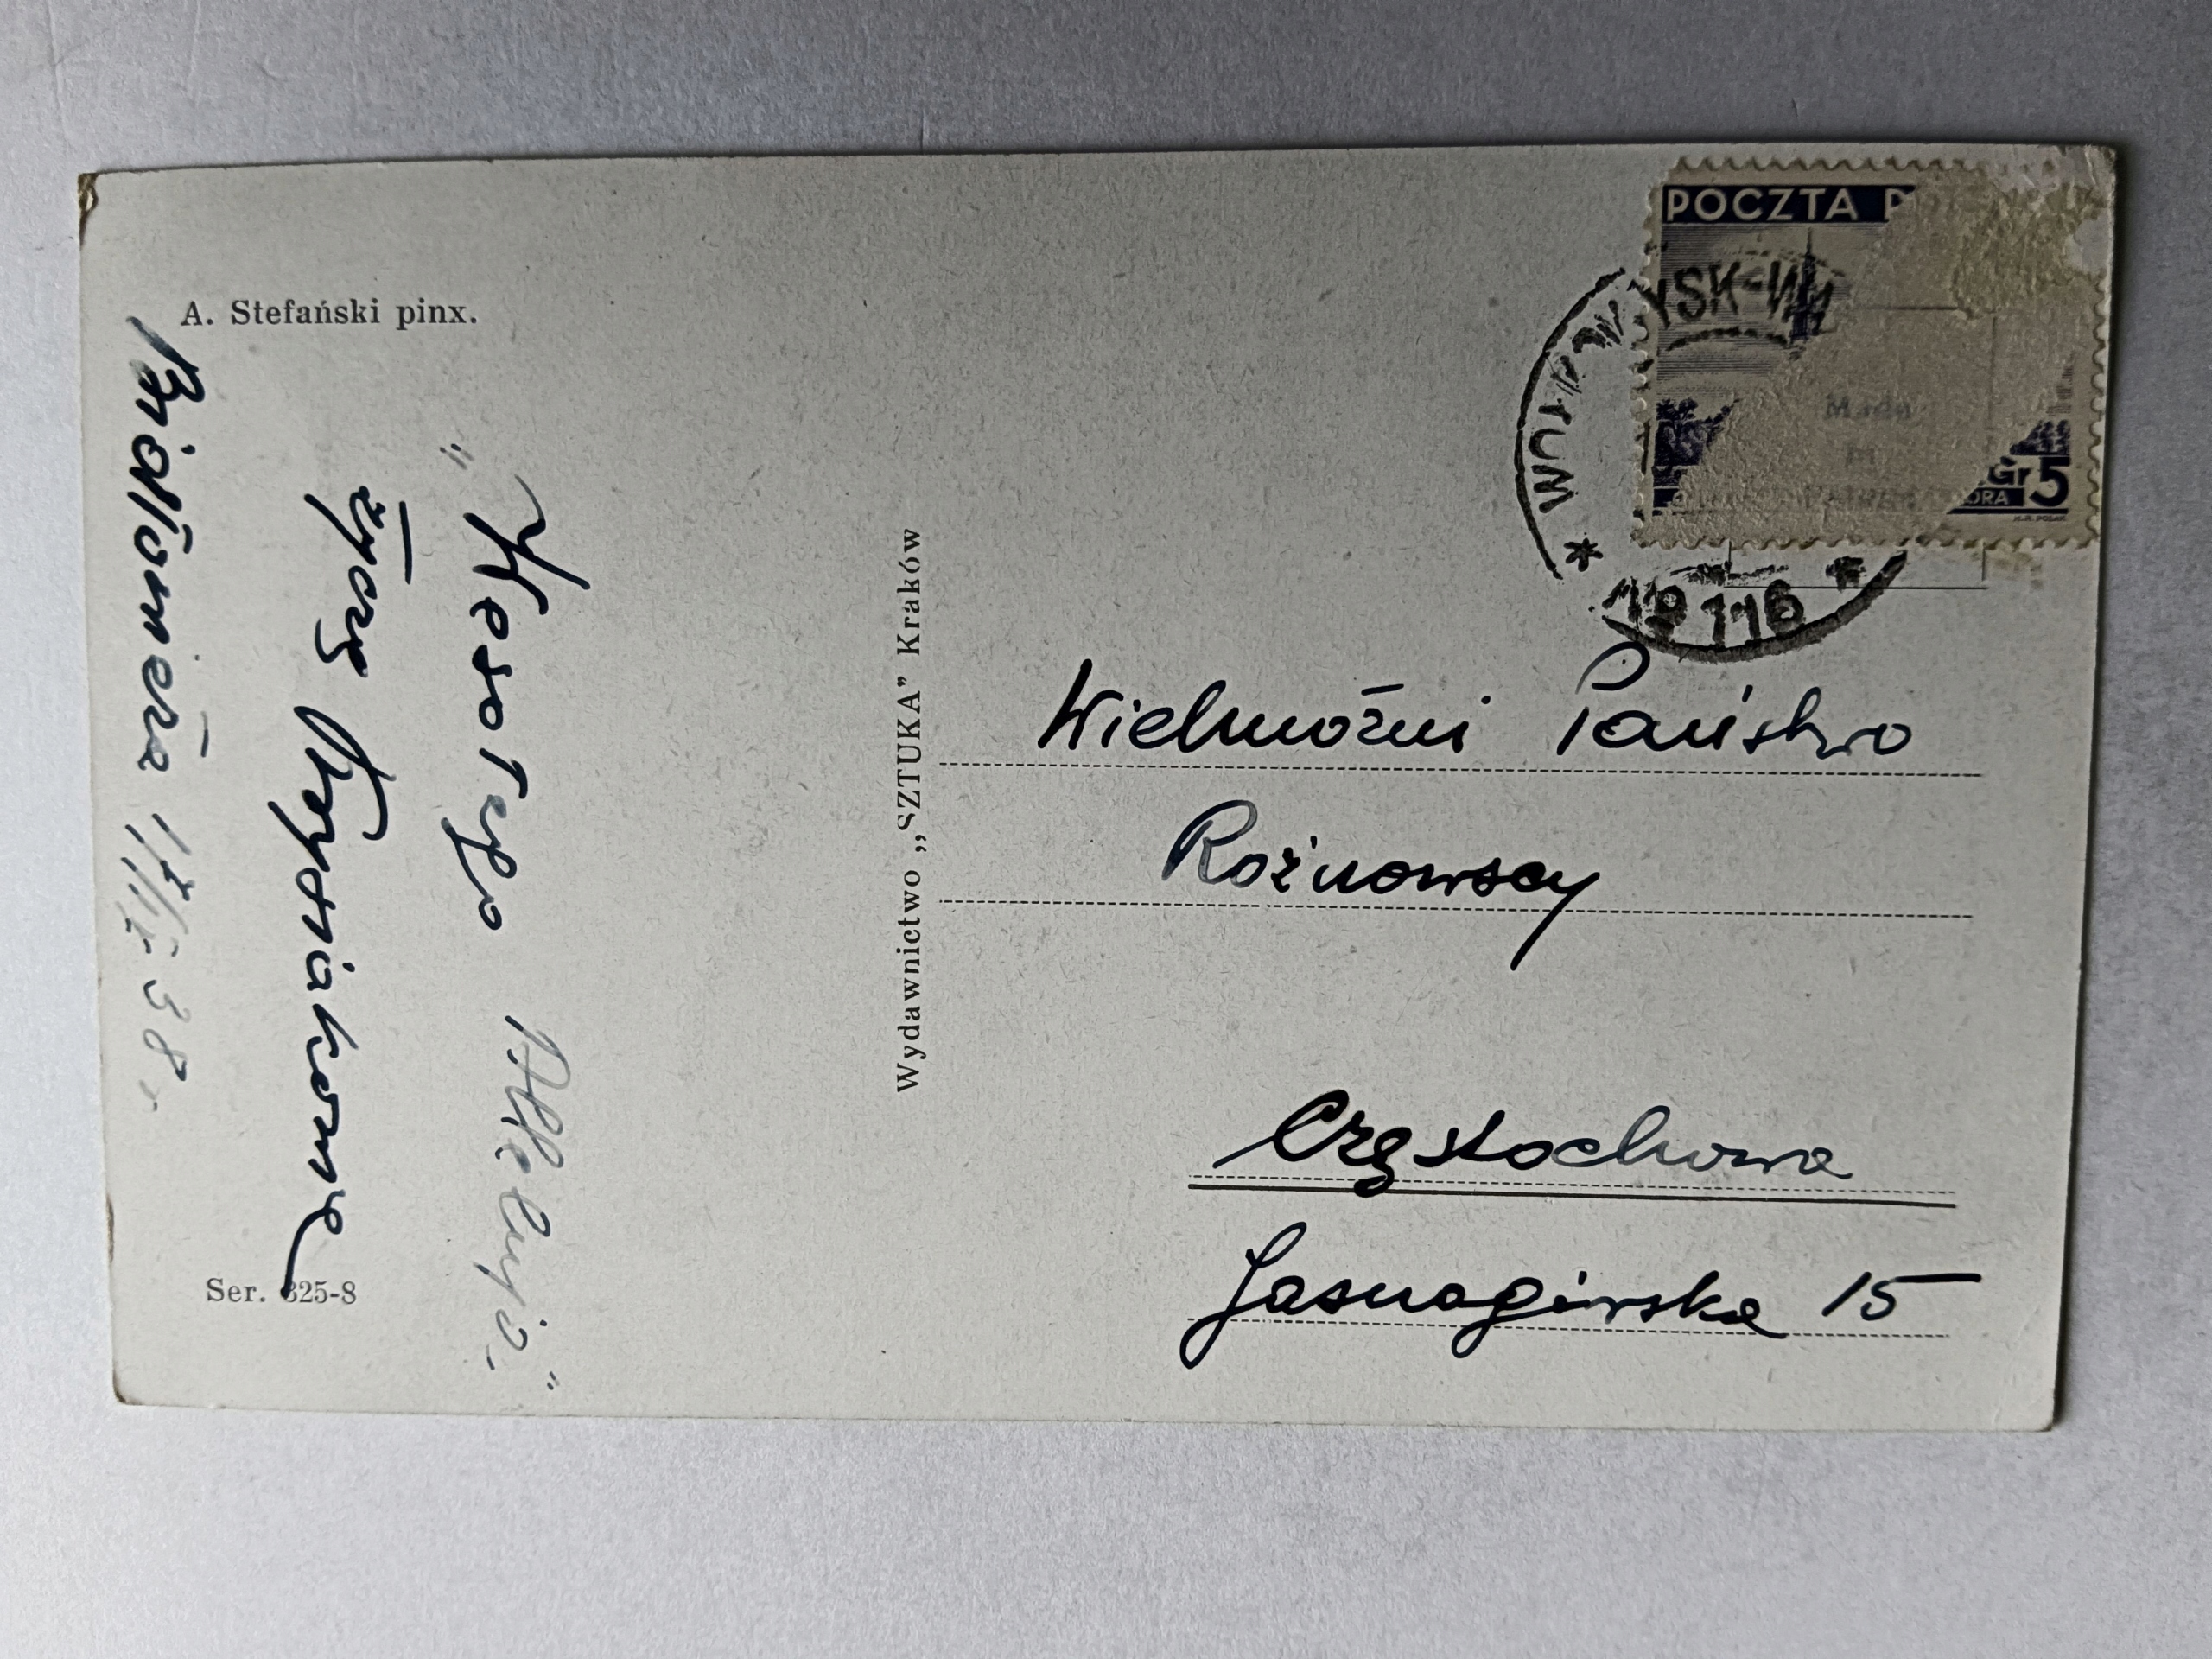 A. Stefański pinx.
„Wesołego Alleluja."
życzę
Białowieża 38.
Ser. 325-8
Wydawnictwo „SZTUKA" Kraków
POCZTA P
YSK-W
Gr 5
ÓRA
* *
19 116
Wielmożni Państwo
Rożnowscy
Częstochowa
Jasnogórska 15